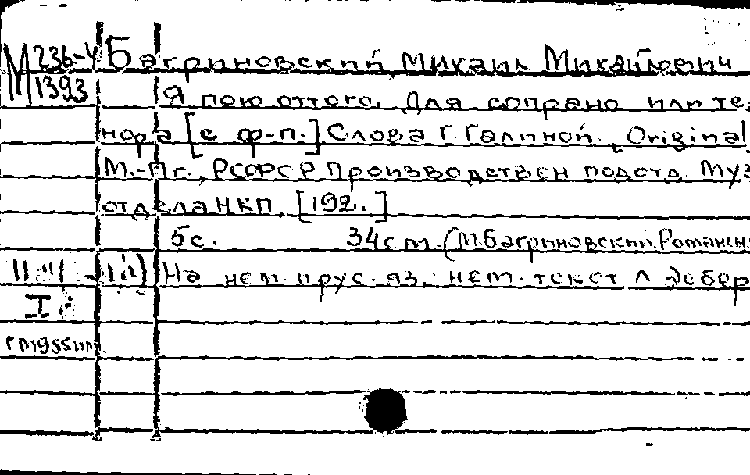 М 236-4 Багриновский, Михаил Михайлович
1393 Я пою оттого. Для сопрано или те
нора [с ф-п.] Слова Г. Галиной. Original
М.-Пг., РСФСР Производствен подотд. Муз
отдела НКП, [192.]
5с. 34cm. (М. Багриновский. Романсы
На нем и рус. яз., нем. текст Л Эсбер
I